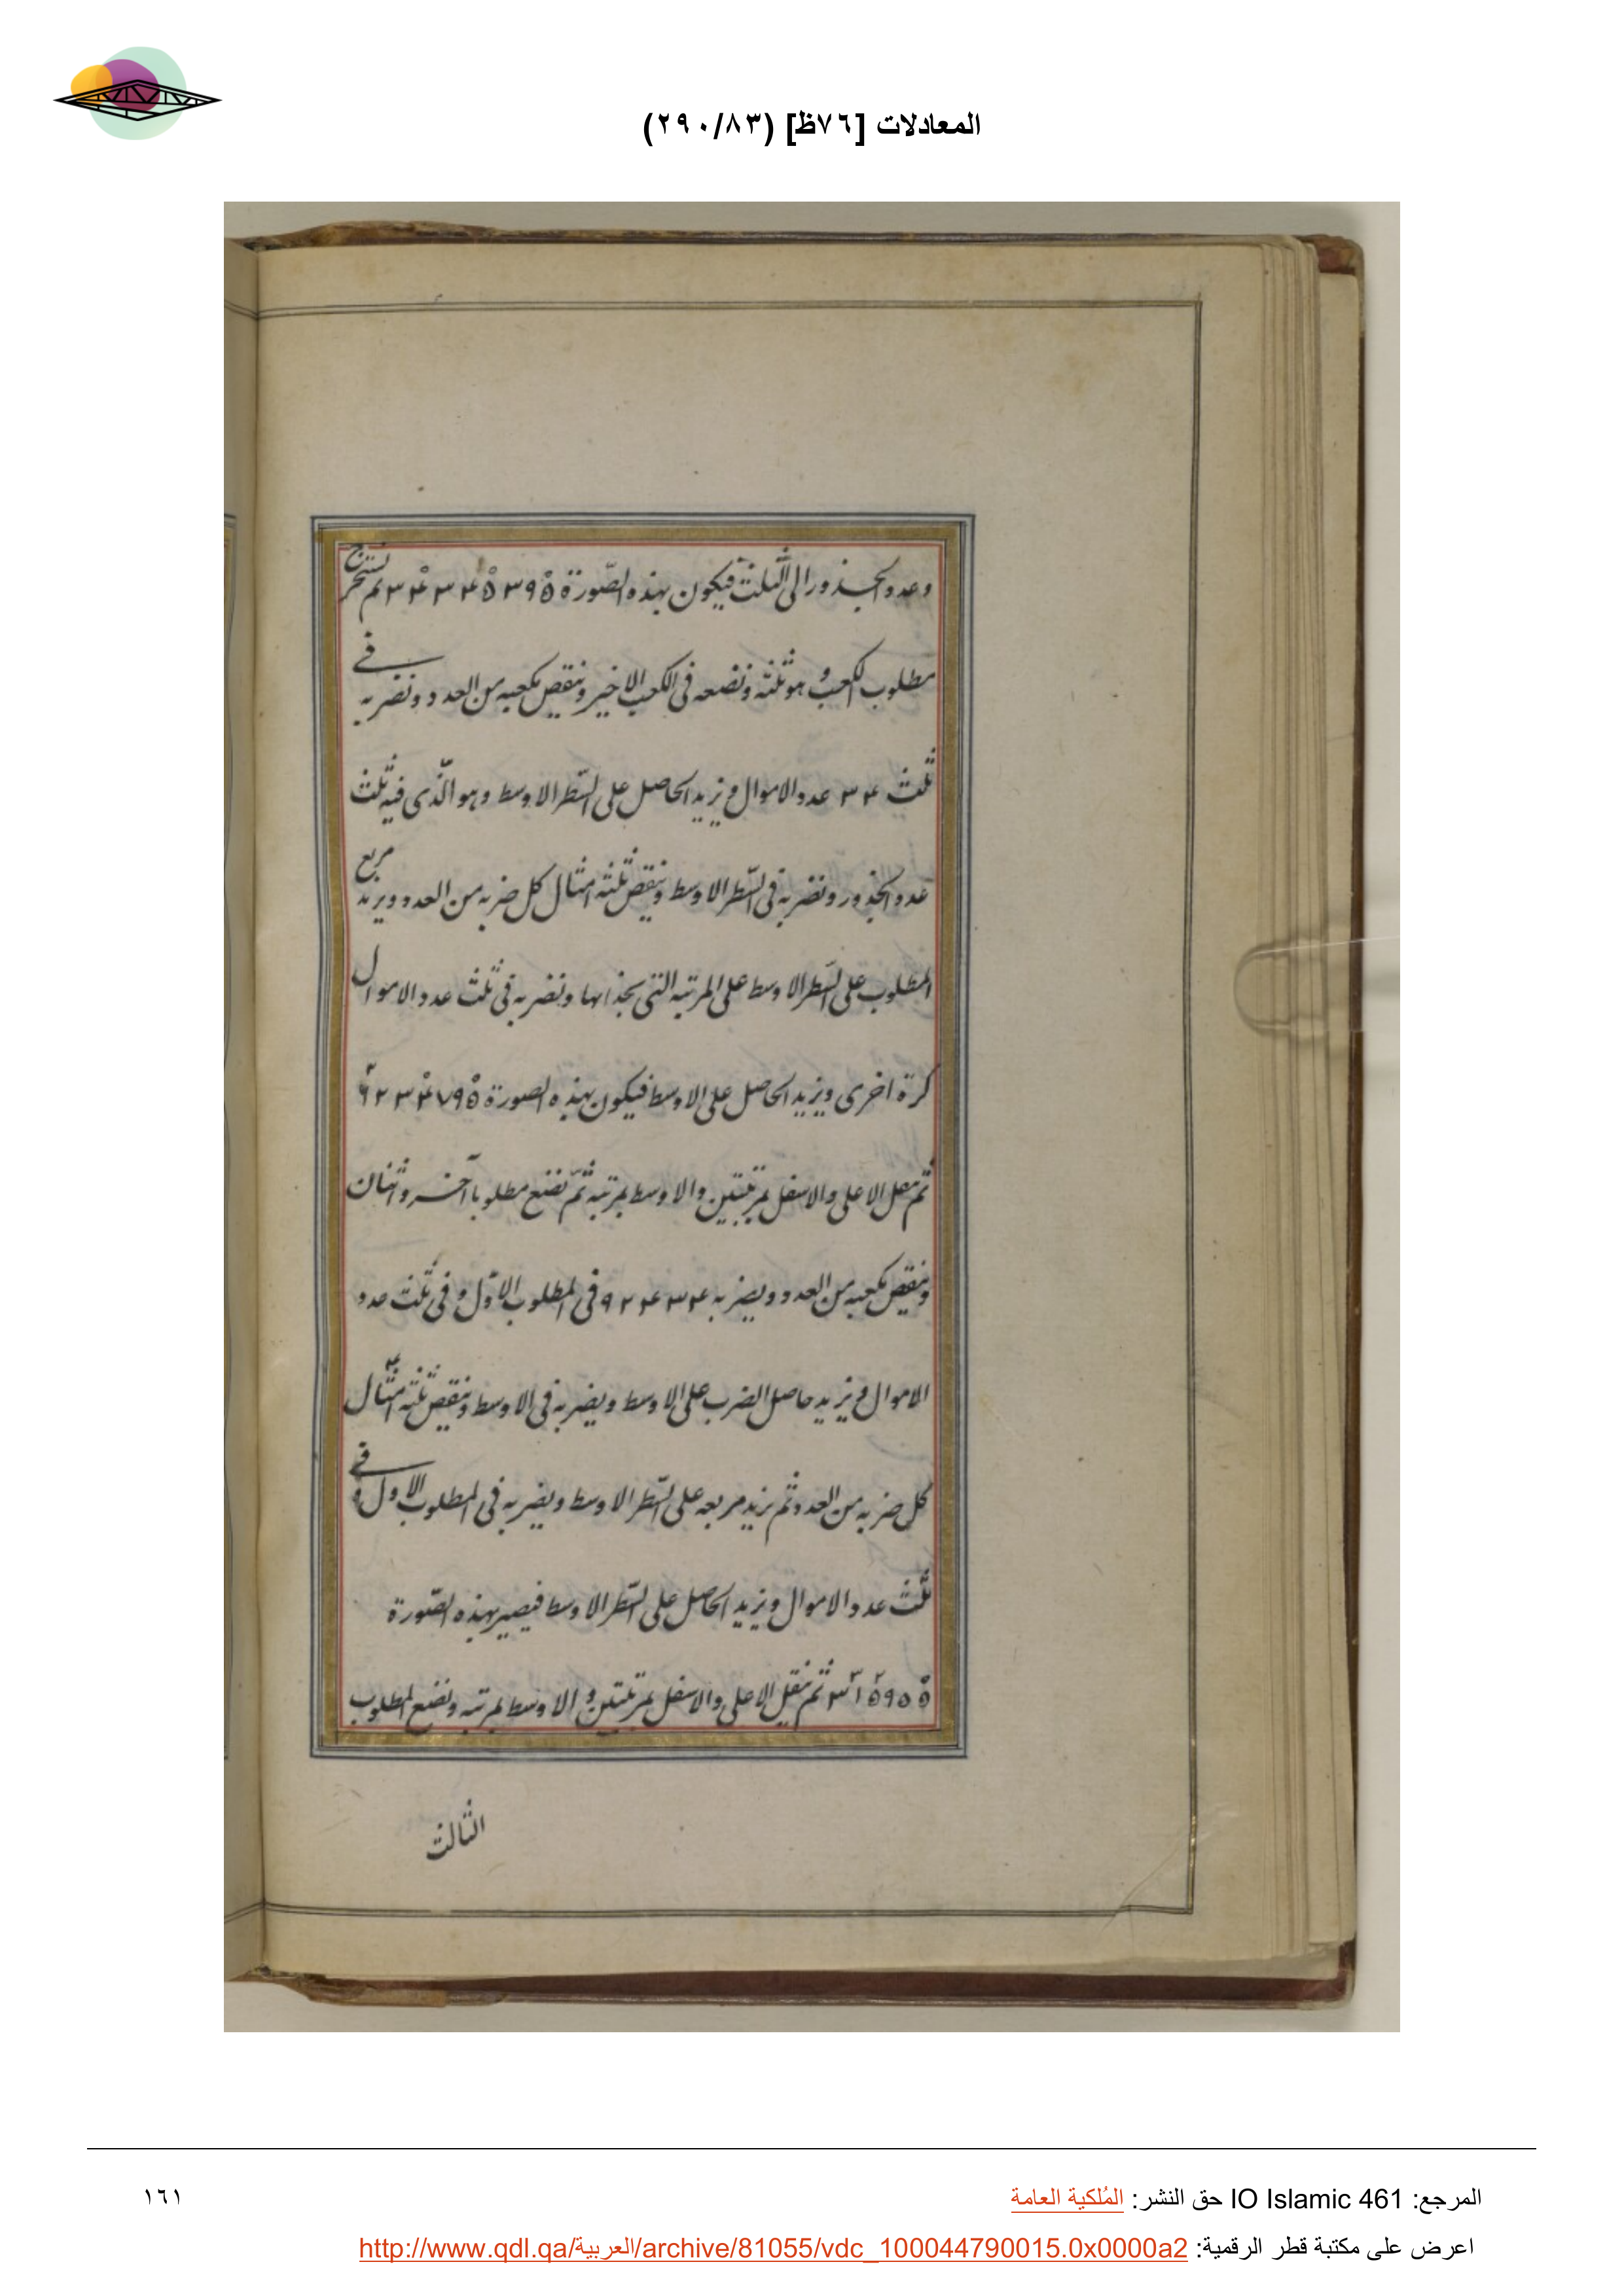 المعادلات [٧٦ظ] (٢٩٠/٨٣)
وعدد الجذور الى الثلث فيكون بهذه الصّورة ثم نستخرج
مطلوب الكعب وهو ثلثه ونضعه فى الكعب الاخير وننقص مكعبه من العدد ونضربه فى
ثلث ٣٤ عدد الاموال ونزيد الحاصل على السّطر الاوسط وهو الّذى فيه ثلث
عدد الجذور ونضربه فى السّطر الاوسط وننقص ثلثه امثال كل ضربه من العدد ويزيد مربع
المطلوب على السّطر الاوسط على المرتبه التى بحذائها ونضربه فى ثلث عدد الاموال
كرة اخرى ويزيد الحاصل على الاوسط فيكون بهذه الصورة
ثم ننقل الاعلى والاسفل بمرتبتين والاوسط بمرتبه ثمّ نضع مطلوبا آخر واثنان
وننقص مكعبه من العدد ويضربه فى المطلوب الاوّل وفى ثلث عدد
الاموال ويزيد حاصل الضرب على الاوسط ويضربه فى الاوسط وننقص ثلثه امثال
كل ضربه من العدد ثم نزيد مربعه على السّطر الاوسط ويضربه فى المطلوب الاول وفى
ثلث عدد الاموال ويزيد الحاصل على السّطر الاوسط فيصير بهذه الصّورة
ثم ننقل الاعلى والاسفل بمرتبتين والاوسط بمرتبه ونضع المطلوب
الثالث
المرجع: IO Islamic 461 حق النشر: المُلكية العامة
١٦١
اعرض على مكتبة قطر الرقمية: http://www.qdl.qa/العربية/archive/81055/vdc_100044790015.0x0000a2